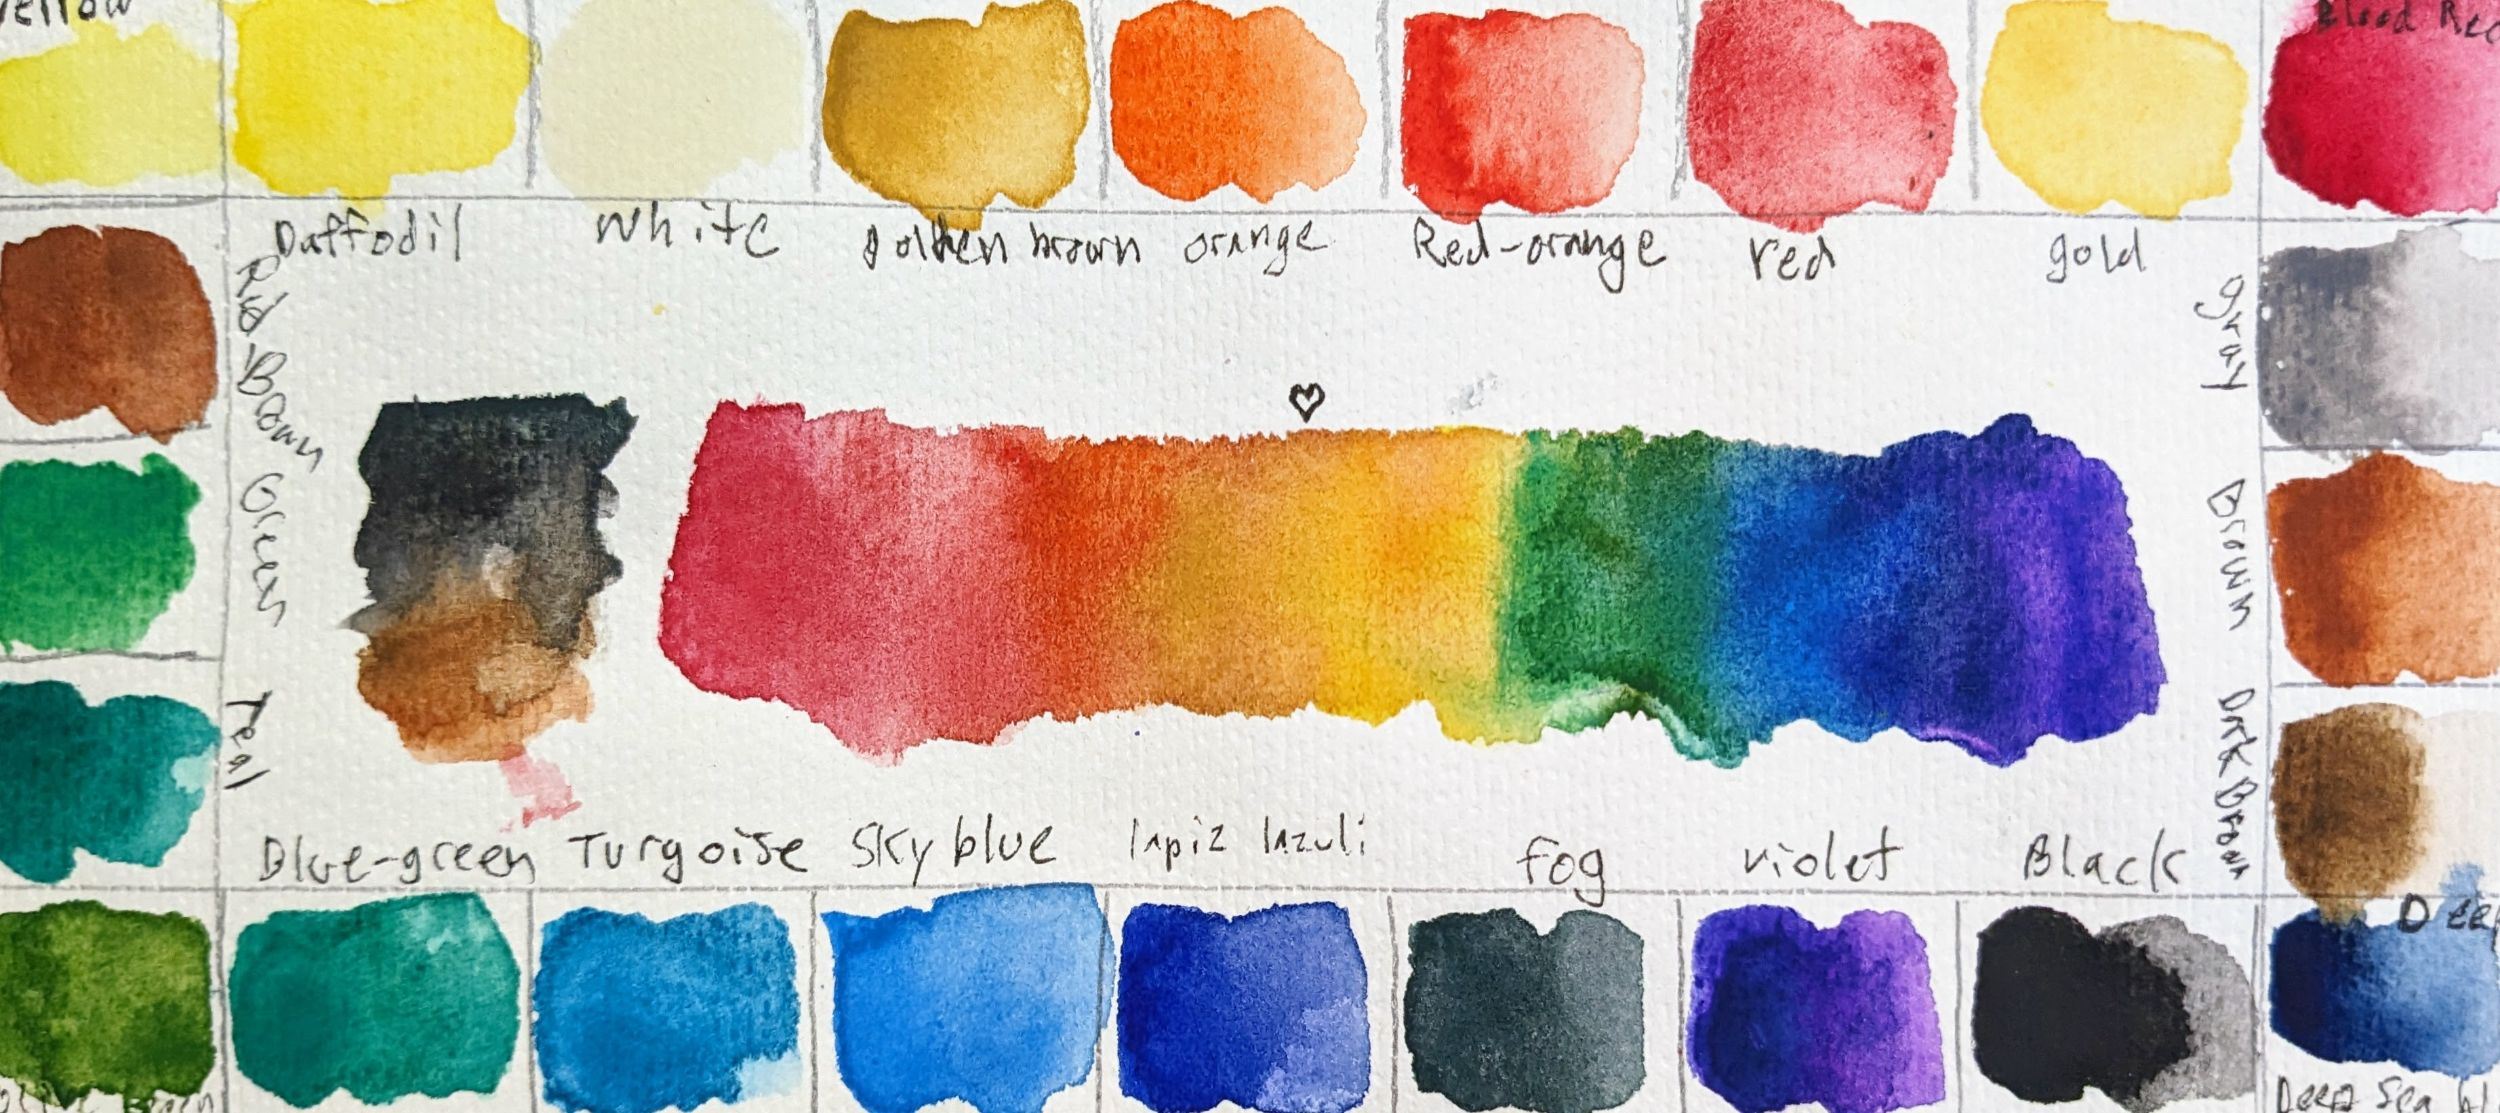 Yellow
Blood Red
Daffodil
White
golden brown
orange
Red-orange
red
gold
Red-Brown
gray
Green
Brown
Teal
Drk Brown
Blue-green
Turgoise
Sky blue
lapiz lazuli
fog
violet
Black
Deep
Green
Deep Sea bl